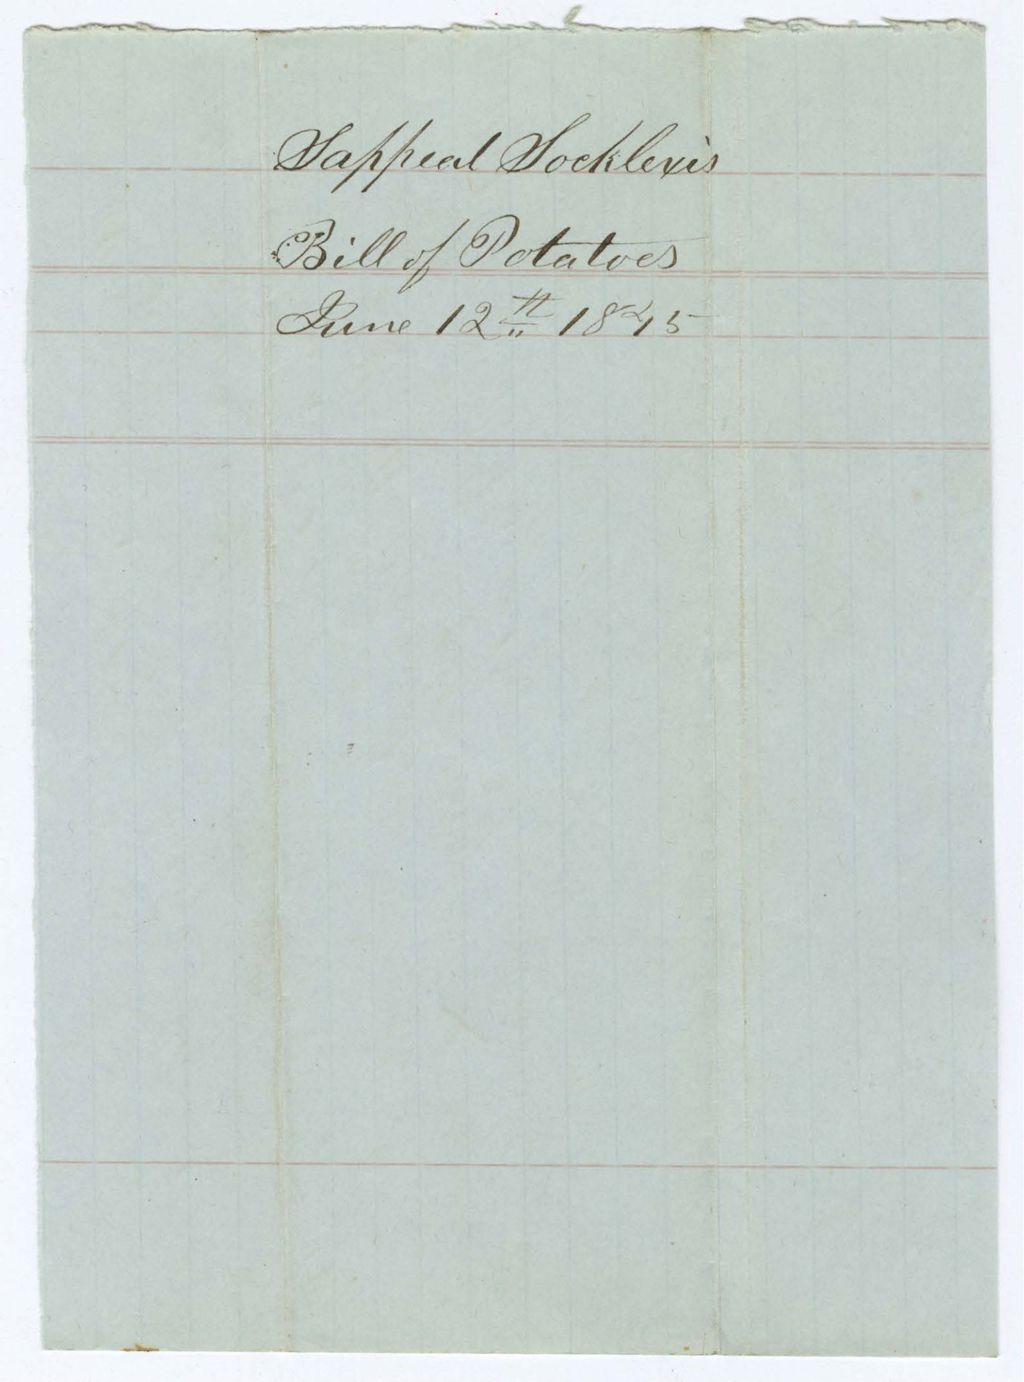 Sappeal Socklexis
Bill of Potatoes
June 12th 1875